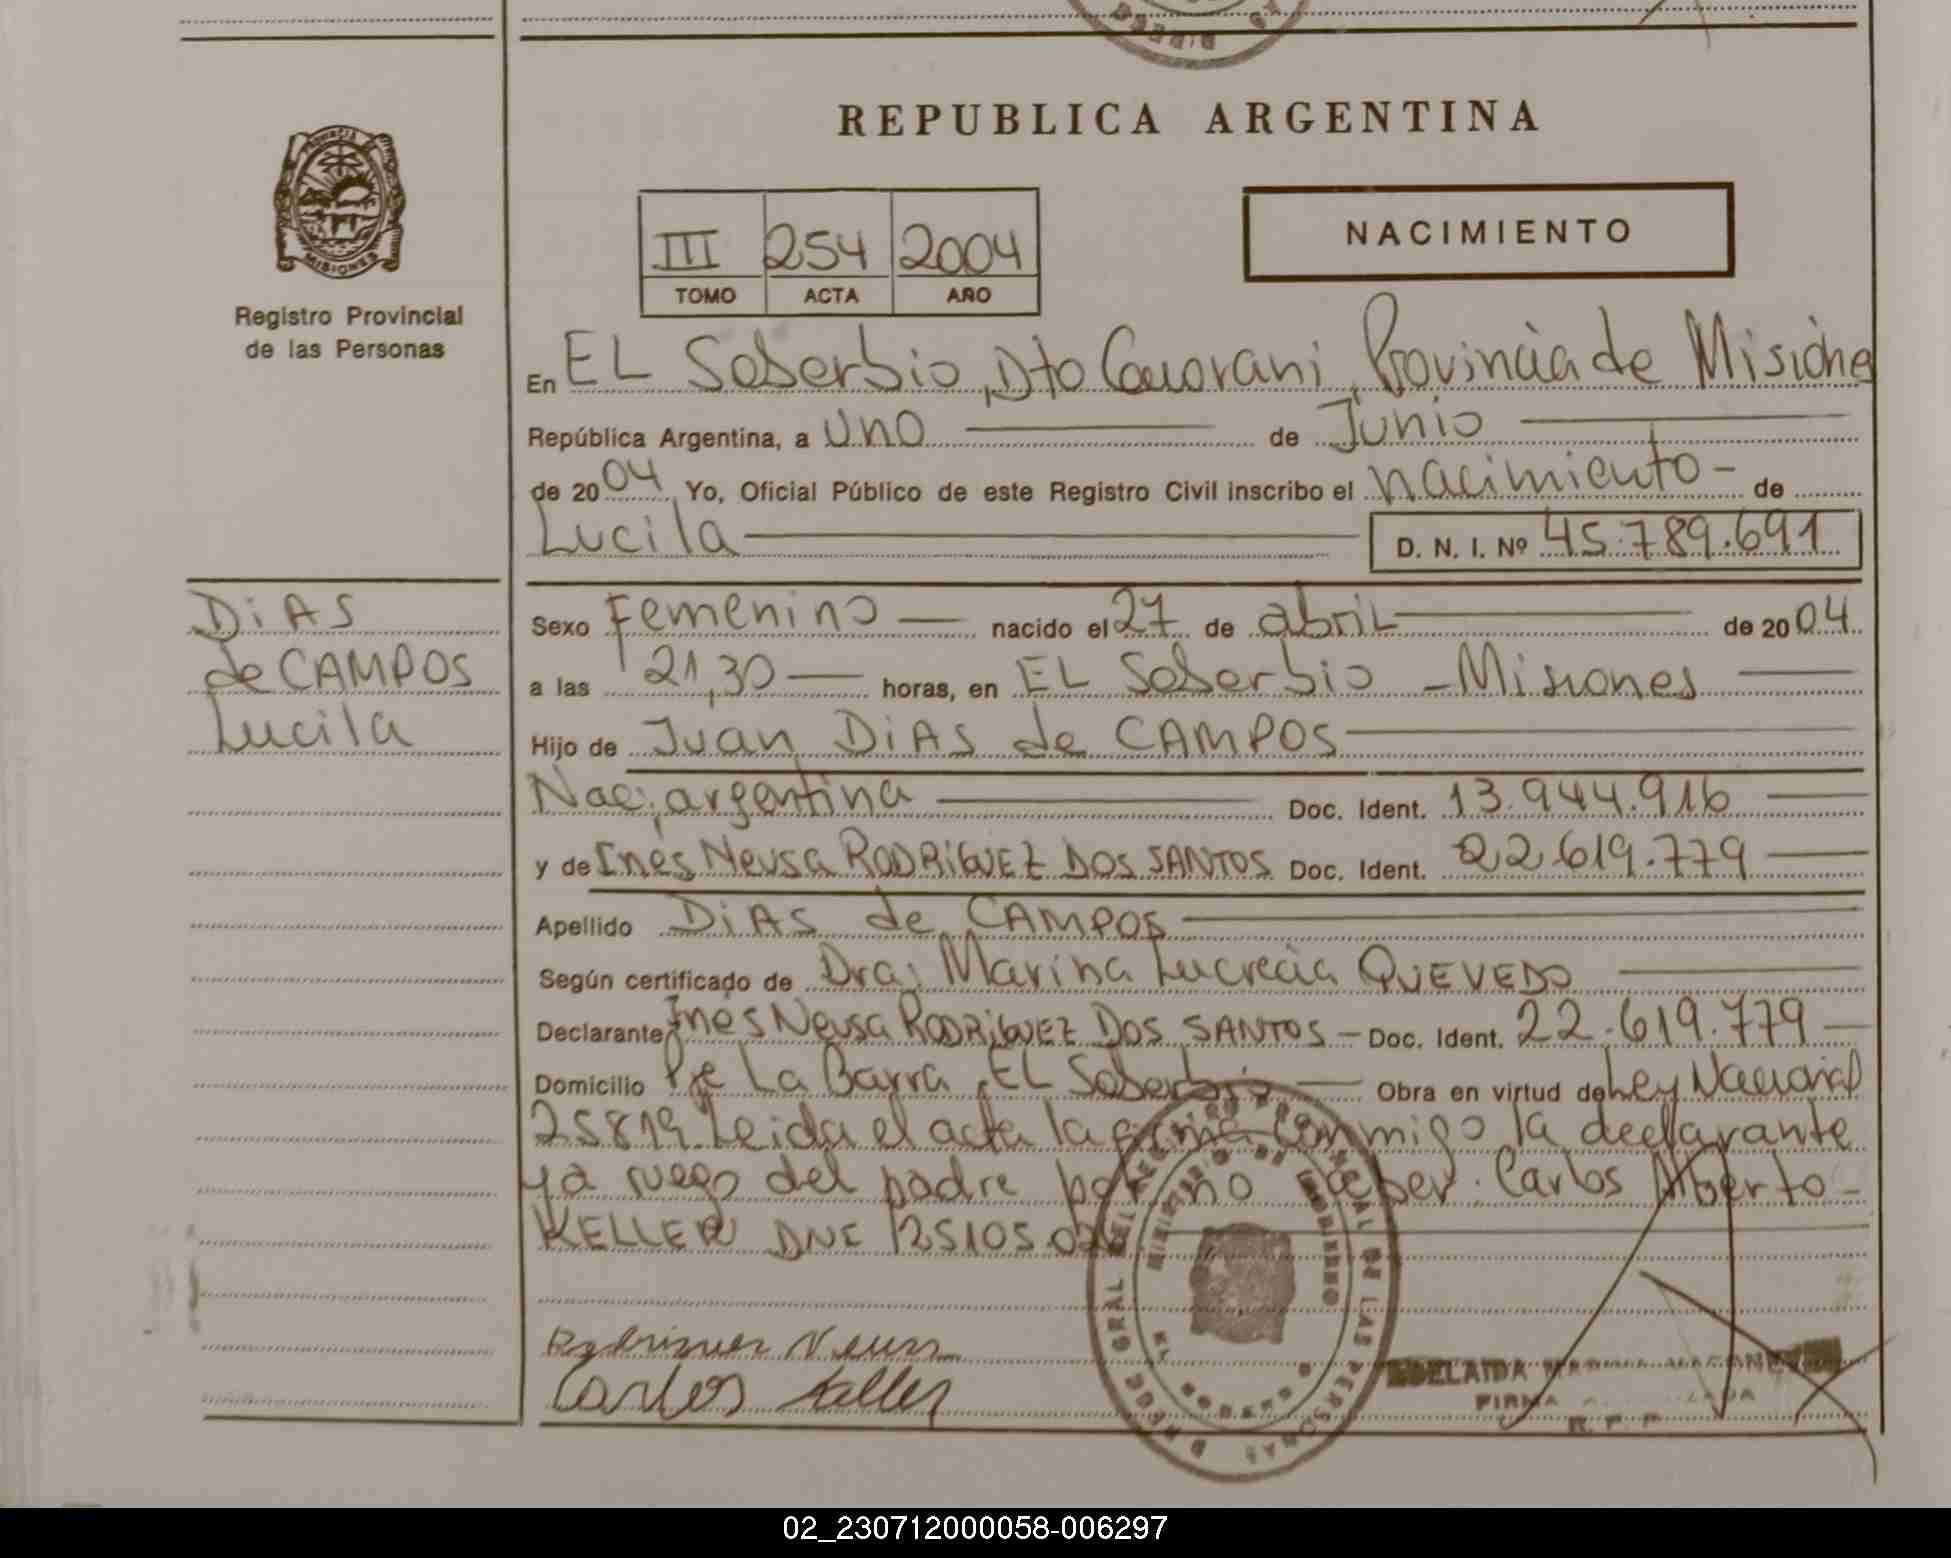 REPUBLICA ARGENTINA
PROVINCIA DE
MISIONES
Registro Provincial
de las Personas
III 254 2004
TOMO ACTA AÑO
NACIMIENTO
En EL Soberbio, Dto Guarani, Provincia de Misiones
República Argentina, a uno de Junio
de 2004 Yo, Oficial Público de este Registro Civil inscribo el nacimiento - de
Lucila D. N. I. Nº 45.789.691
DiAS
de CAMPOS
Lucila
Sexo Femenino nacido el 27 de abril de 2004
a las 21,30 horas, en EL Soberbio - Misiones
Hijo de Juan DiAS de CAMPOS
Nac. argentina Doc. Ident. 13.944.916
y de Inés Neusa RODRiGUEZ DOS SANTOS Doc. Ident. 22.619.779
Apellido DiAS de CAMPOS
Según certificado de Dra. Marina Lucrecia QUEVEDO
Declarante Ines Neusa RODRiGUEZ DOS SANTOS - Doc. Ident. 22.619.779
Domicilio Pje La Barra, EL Soberbio Obra en virtud de Ley Nacional
25819. Leida el acta la firma conmigo la declarante
y a ruego del padre por no saber. Carlos Alberto -
KELLER DNI 25105.02
Rodriguez Neusa
Carlos Keller
ADELAIDA
FIRMA
R. P. P.
02_230712000058-006297